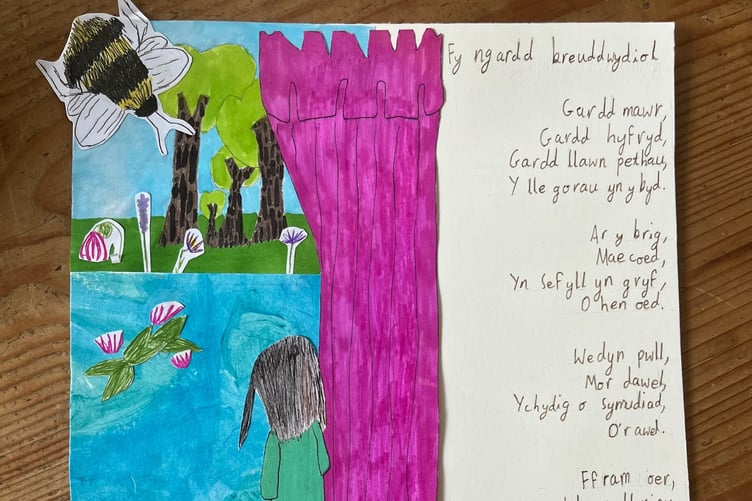 Fy ngardd breuddwydiol
Gardd mawr,
Gardd hyfryd,
Gardd llawn pethau,
Y lle gorau yn y byd.
Ar y brig,
Mae coed,
Yn sefyll yn gryf,
O hen oed.
Wedyn pwll,
Mor dawel,
Ychydig o symudiad,
O'r awel.
Ffram oer,